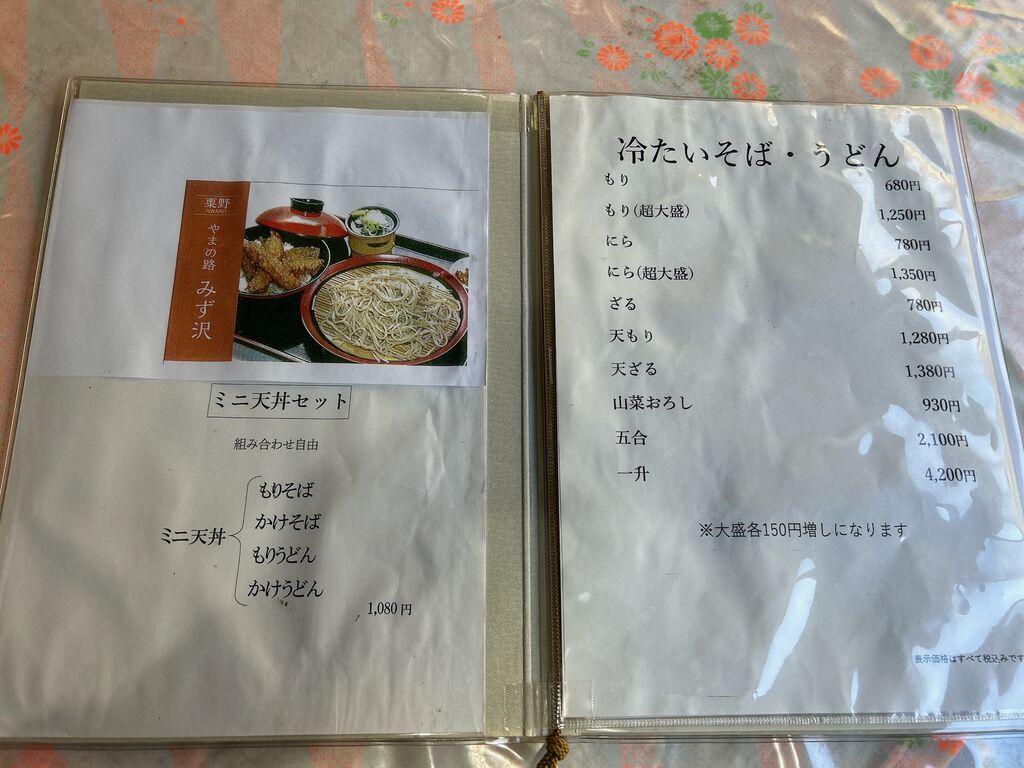 粟野
AWANO
やまの路
みず沢
ミニ天丼セット
組み合わせ自由
ミニ天丼
もりそば
かけそば
もりうどん
かけうどん
1,080円
冷たいそば・うどん
もり 680円
もり(超大盛) 1,250円
にら 780円
にら(超大盛) 1,350円
ざる 780円
天もり 1,280円
天ざる 1,380円
山菜おろし 930円
五合 2,100円
一升 4,200円
※大盛各150円増しになります
表示価格はすべて税込みです